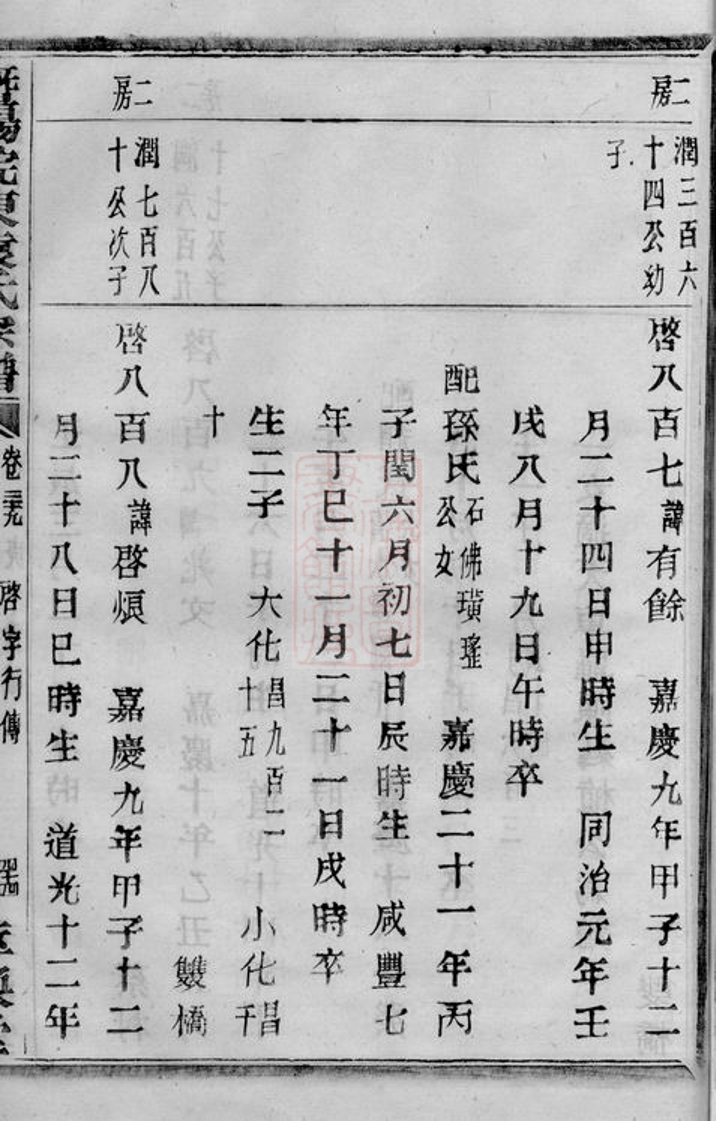 二房
潤三百六十四公幼子
啓八百七諱有餘 嘉慶九年甲子十二
月二十四日申時生 同治元年壬
戌八月十九日午時卒
配孫氏石佛璜瑤公女 嘉慶二十一年丙
子閏六月初七日辰時生 咸豐七
年丁巳十一月二十一日戌時卒
生二子 大化昌九百二十五 小化昌千
十 雙橋
二房
潤七百八十公次子
啓八百八諱啓煩 嘉慶九年甲子十二
月二十八日巳時生 道光十二年
東 氏宗譜
啓字行傳